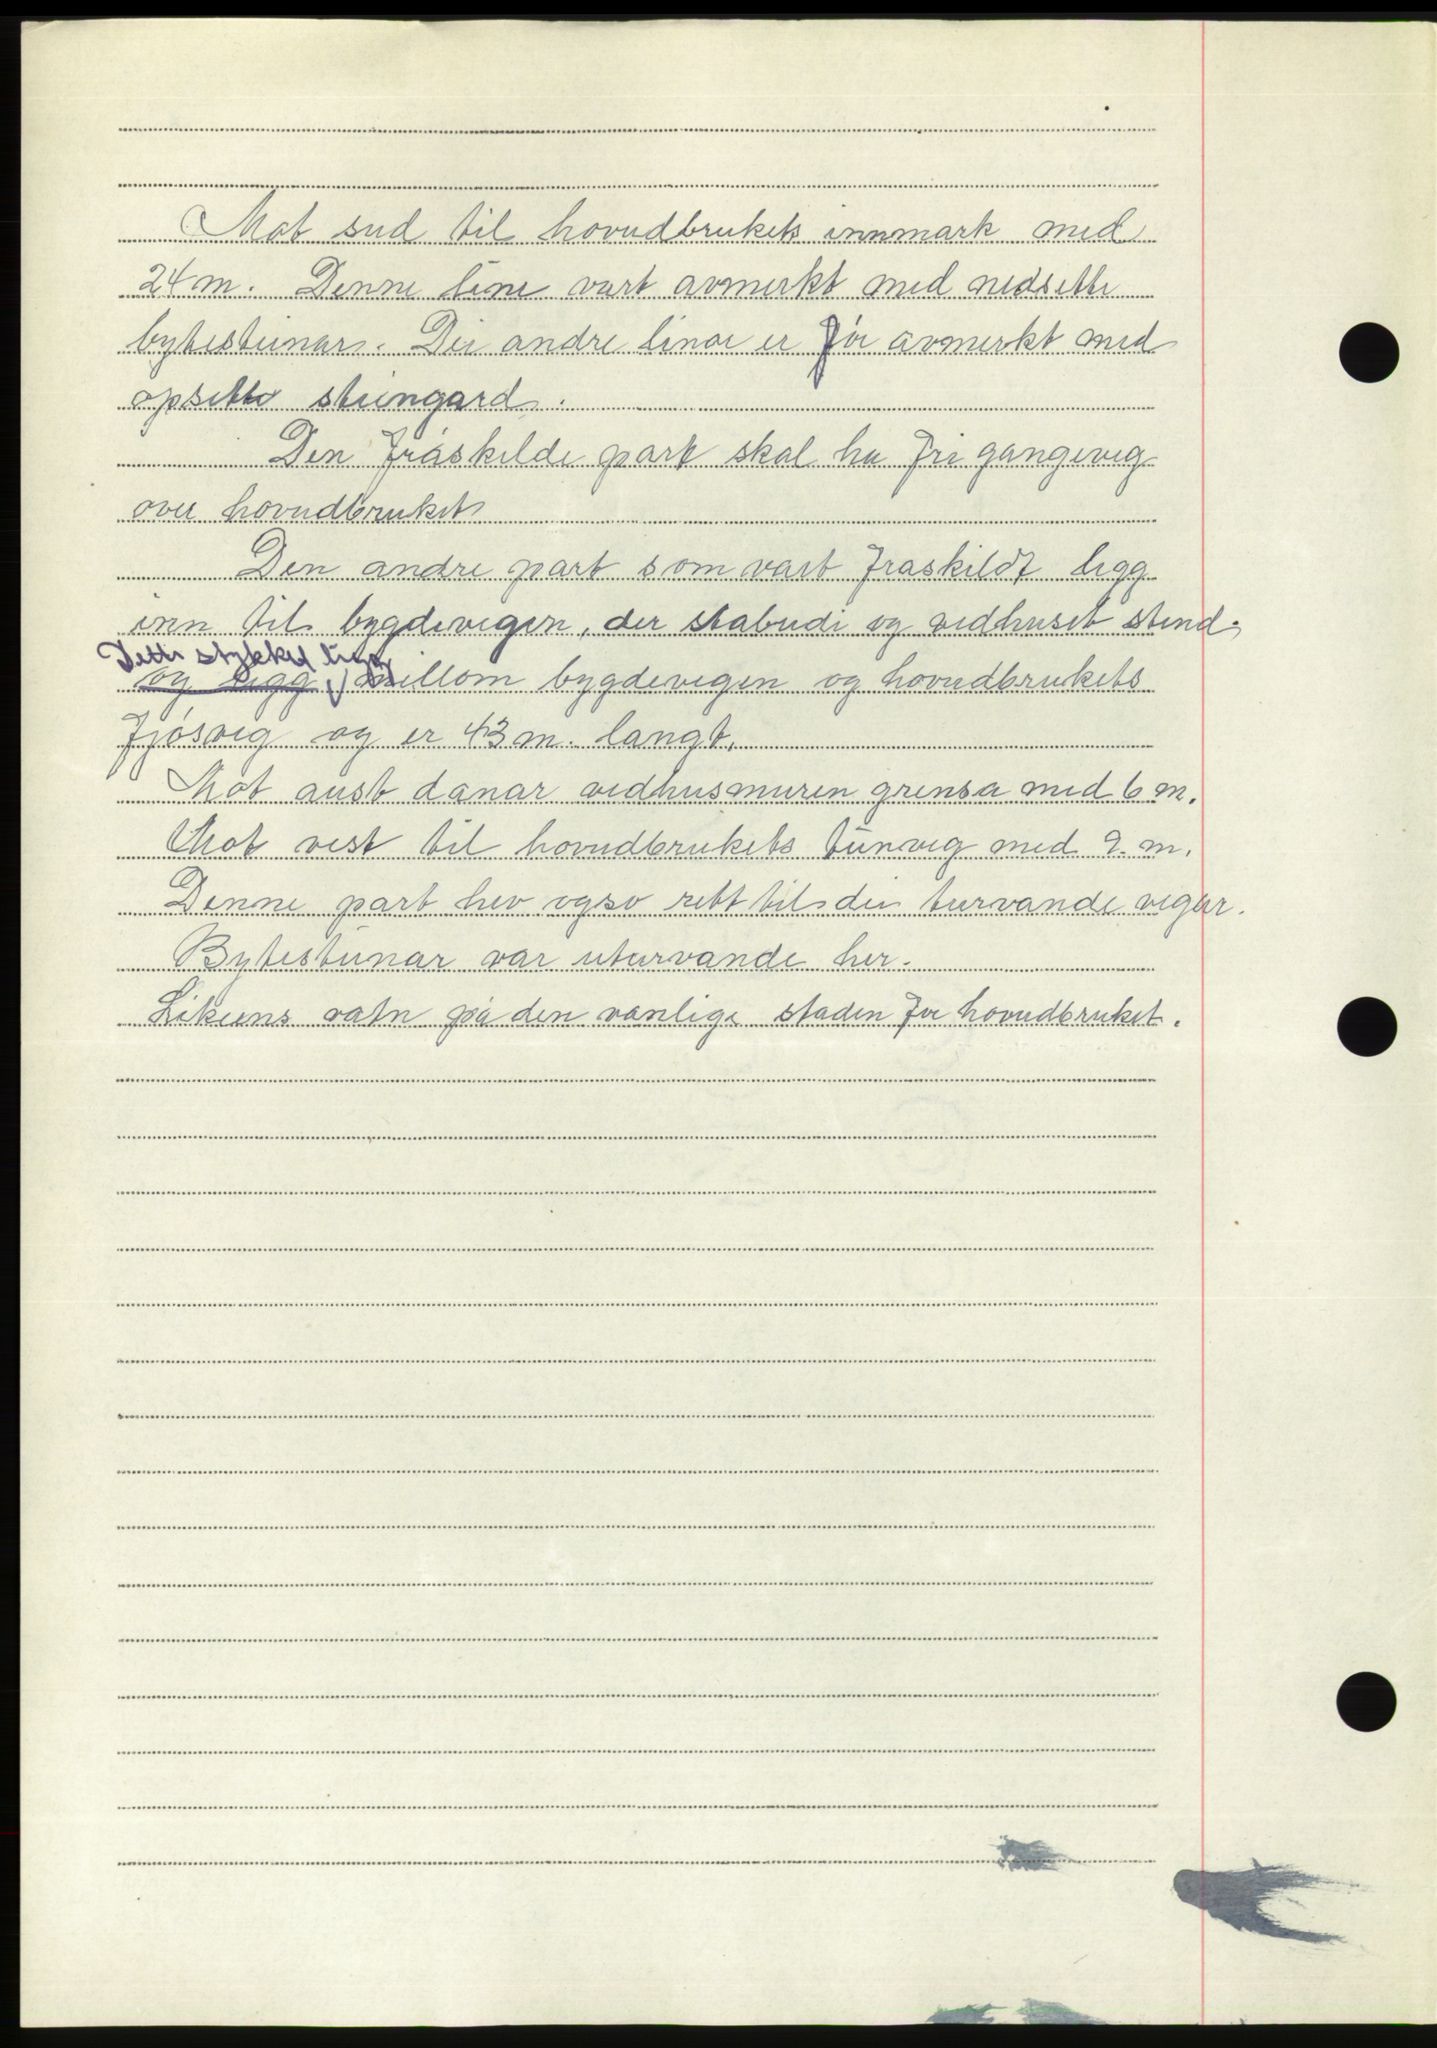 Mot sud til hovudbrukets innmark med
24 m. Denne line vart avmerkt med nedsette
bytesteinar. Dei andre linor er før avmerkt med
opsette steingard.
Den fråskilde part skal ha fri gangeveg
over hovudbruket
Den andre part som vart fraskildt ligg
inn til bygdevegen, der stabudi og vedhuset stend.
Dette stykket ligg
og ligg millom bygdevegen og hovudbrukets
fjøsveg og er 43 m. langt.
Mot aust danar vedhusmuren grensa med 6 m.
Mot vest til hovudbrukets tunveg med 9 m.
Denne part hev ogso rett til dei turvande vegar.
Bytesteinar var uturvande her.
Likeens vatn på den vanlige staden for hovudbruket.